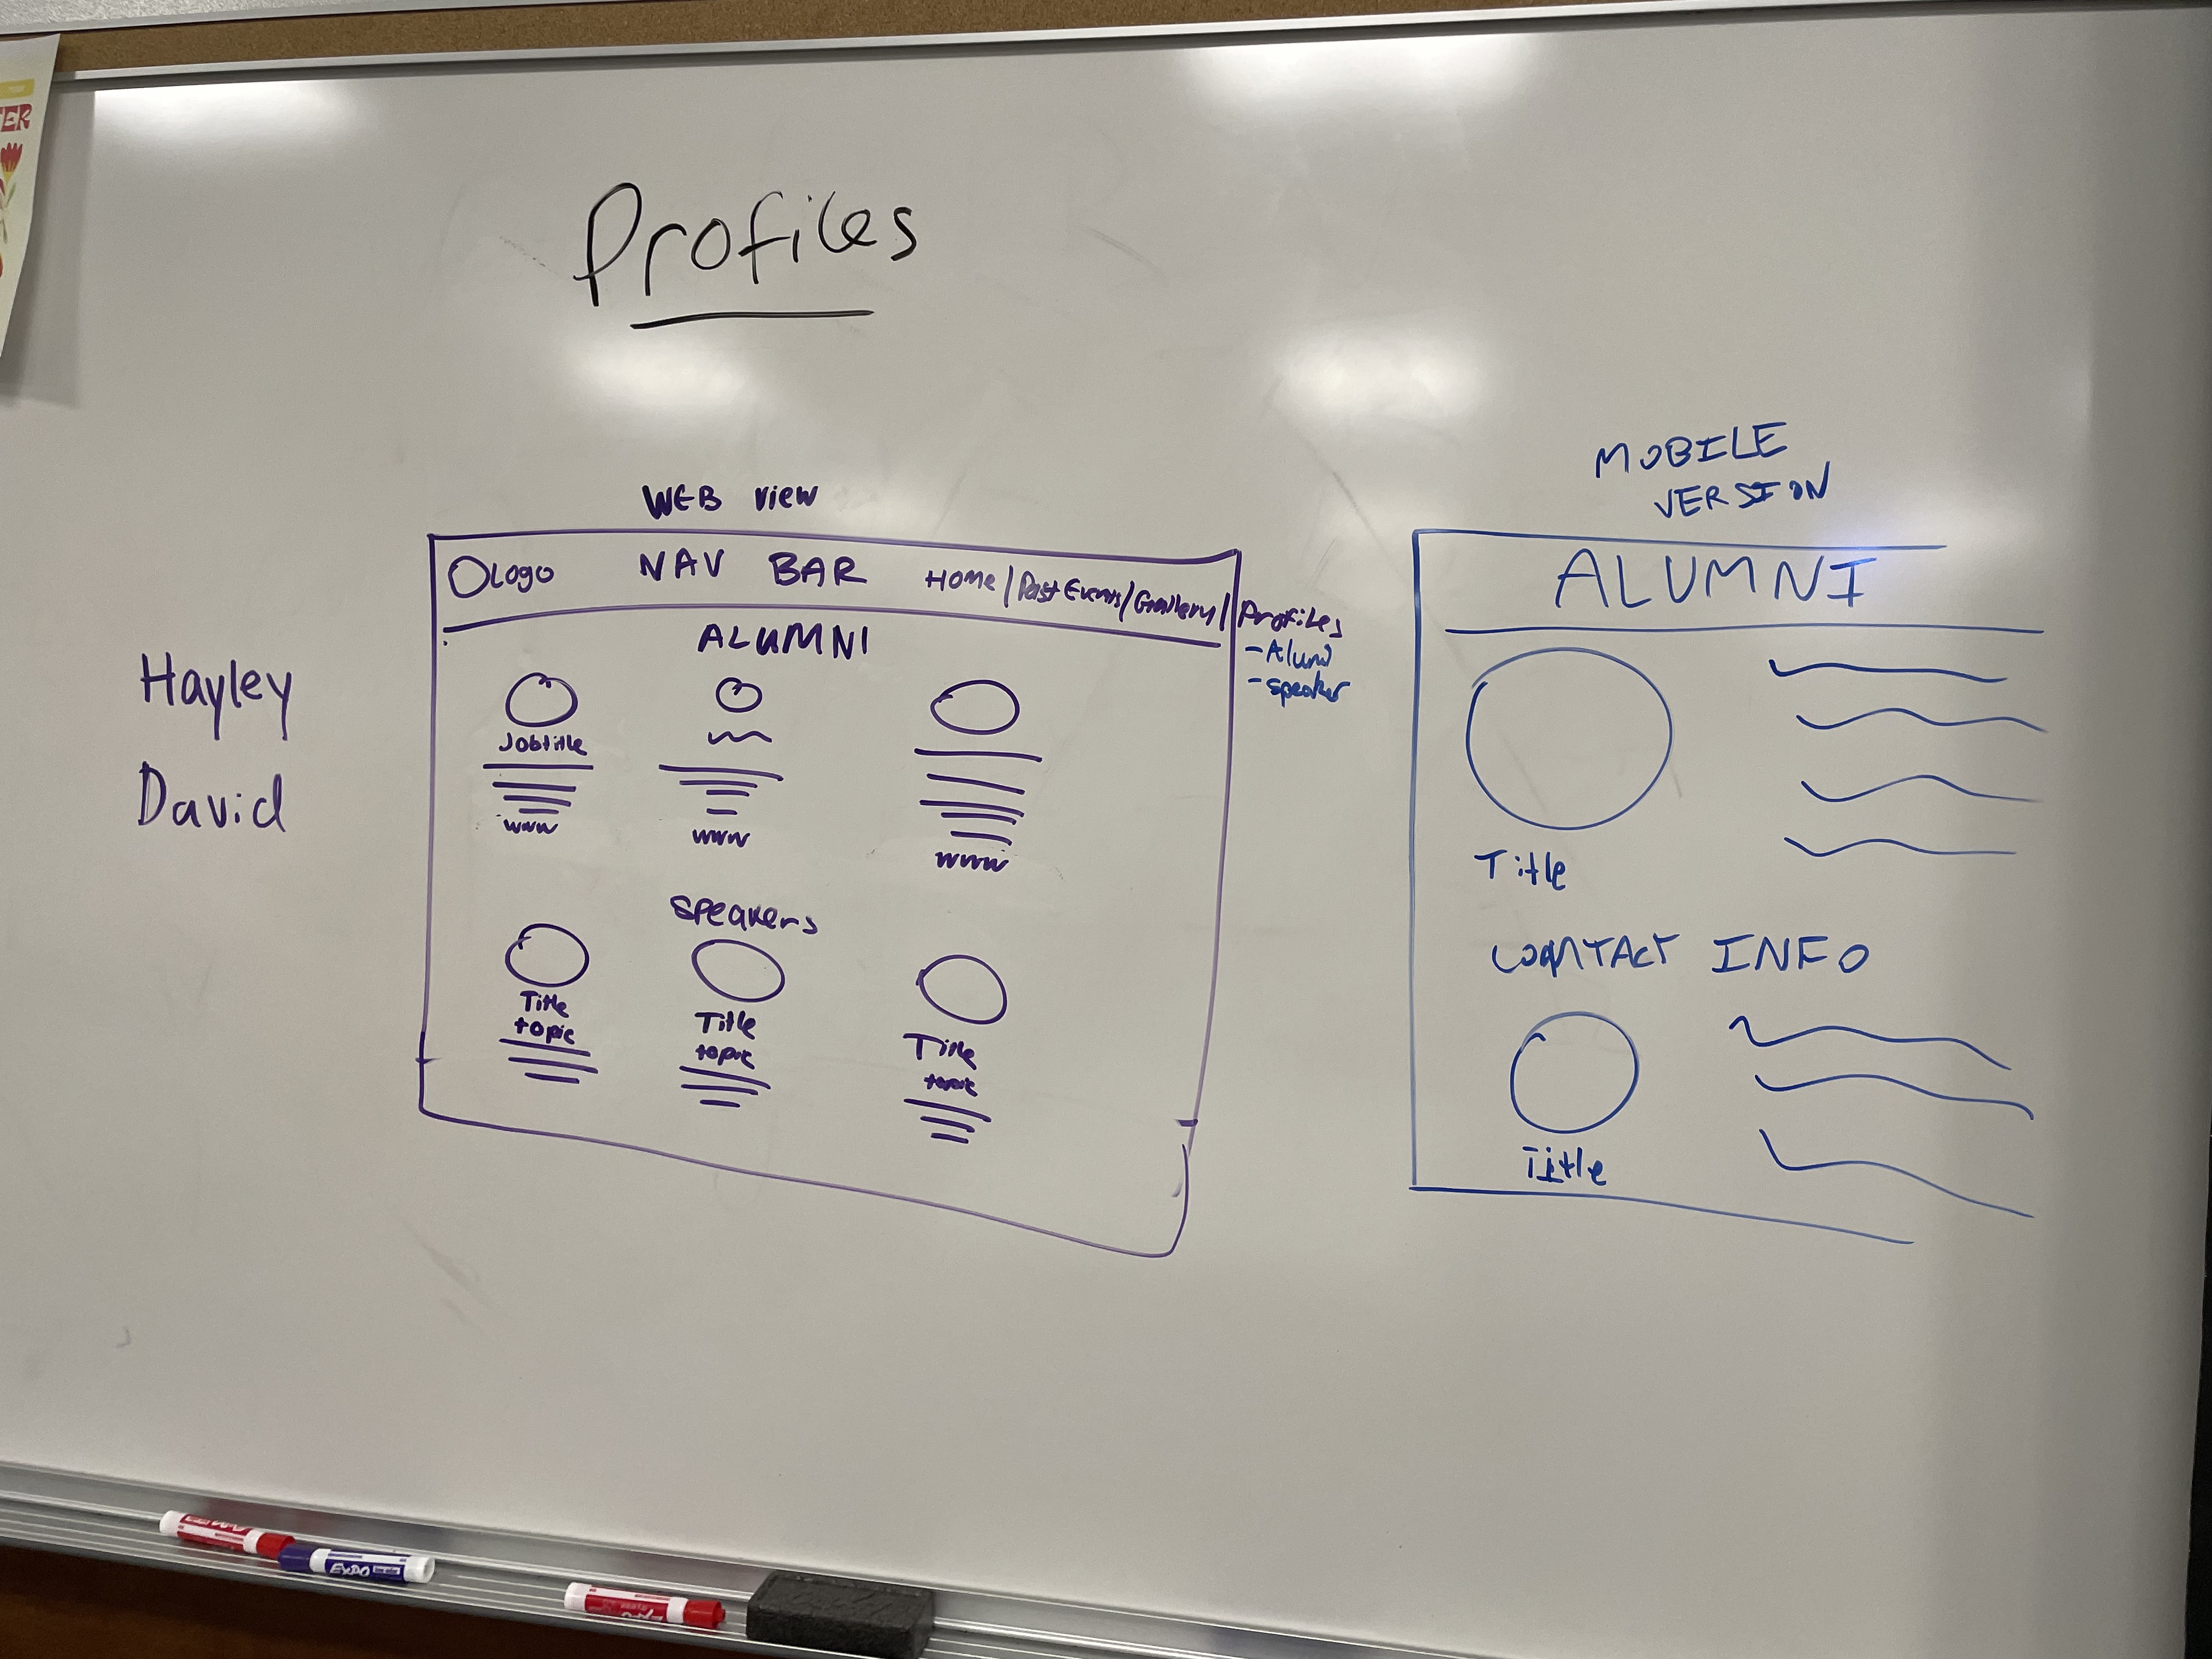 ER
Profiles
WEB view
Logo NAV BAR Home / Past Events / Gallery / Profiles
- Alumni
- Speaker
ALUMNI
Jobtitle
www
www
www
Speakers
Title
topic
Title
topic
Title
topic
Hayley
David
MOBILE
VERSION
ALUMNI
Title
CONTACT INFO
Title
EXPO